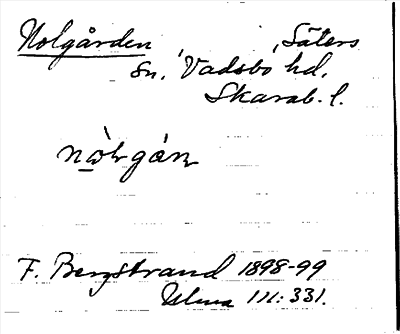 Nolgården, Säters
Sn, Vadsbo hd.
Skarab. l.
F. Bergstrand 1898-99
Ulma 111:331.